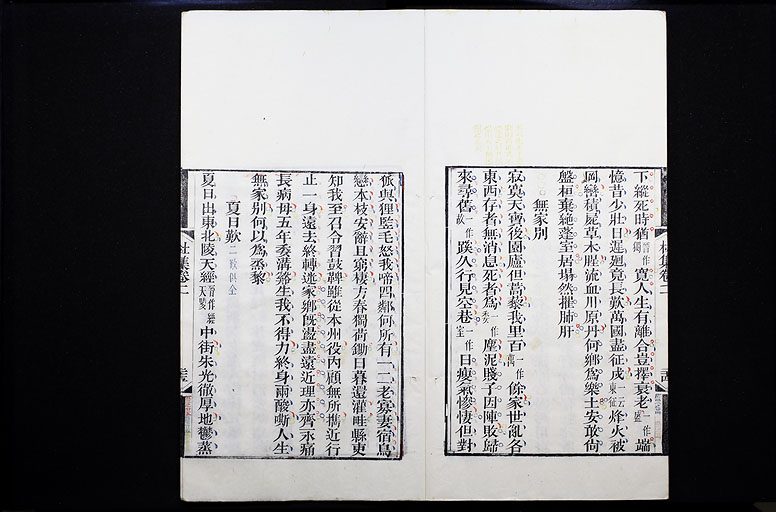 下縱死時猶寬人生有離合豈擇衰老一作盛端
憶昔少壯日遲迴竟長歎萬國盡征戍一云東征烽火被
岡巒積屍草木腥流血川原丹何鄉爲樂土安敢尚
盤桓棄絕蓬室居塌然摧肺肝
無家別
寂寞天寶後園廬但蒿藜我里百一作萬餘家世亂各
東西存者無消息死者爲一作委塵泥賤子因陣敗歸
來尋舊一作故蹊久行見空巷一作室日瘦氣慘悽但對
狐與狸豎毛怒我啼四鄰何所有一二老寡妻宿鳥
戀本枝安辭且窮棲方春獨荷鋤日暮還灌畦縣吏
知我至召令習鼓鞞雖從本州役內顧無所攜近行
止一身遠去終轉迷家鄉既盪盡遠近理亦齊永痛
長病母五年委溝谿生我不得力終身兩酸嘶人生
無家別何以爲蒸黎
夏日歎
夏日出東北陵天經中街朱光徹厚地鬱蒸
杜集卷二
杜集卷二